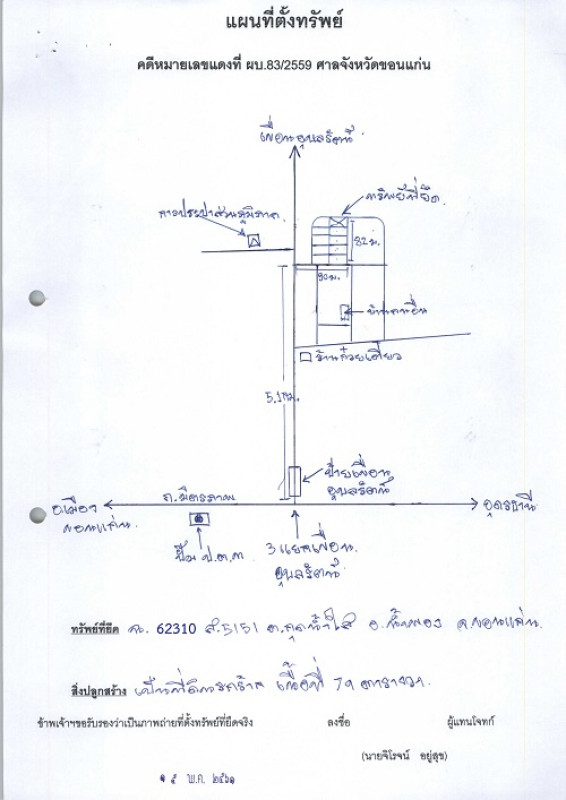 แผนที่ตั้งทรัพย์
คดีหมายเลขแดงที่ ผบ.83/2559 ศาลจังหวัดขอนแก่น
เขื่อนอุบลรัตน์
การประปาส่วนภูมิภาค.
ทรัพย์ที่ยึด.
82 ม.
90 ม.
บ้านคนอื่น
ร้านก๋วยเตี๋ยว
5.1 กม.
ป้ายเขื่อน
อุบลรัตน์
อ.เมือง
ขอนแก่น.
ถ.มิตรภาพ
อุดรธานี
ปั๊ม ป.ต.ท.
3 แยกเขื่อน
อุบลรัตน์
ทรัพย์ที่ยึด ฉ. 62310 ส.5151 ต.กุดน้ำใส อ.น้ำพอง จ.ขอนแก่น.
สิ่งปลูกสร้าง เป็นที่ดินรกร้าง เนื้อที่ 79 ตารางวา.
ข้าพเจ้าฯขอรับรองว่าเป็นภาพถ่ายที่ตั้งทรัพย์ที่ยึดจริง ลงชื่อ ผู้แทนโจทก์
(นายจิโรจน์ อยู่สุข)
๑๕ พ.ค. ๒๕๖๑